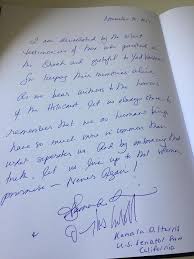 November 20, 2017
I am devastated by the silent
testimonies of those who perished in
the Shoah and grateful to Yad Vashem
for keeping their memories alive.
As we bear witness to the horrors
of the Holocaust, let us always
remember that we as human beings
have so much more in common than
what separates us. And by embracing that
truth, let us live up to that solemn
promise - Never Again!
Kamala D. Harris
U.S. Senator from
California